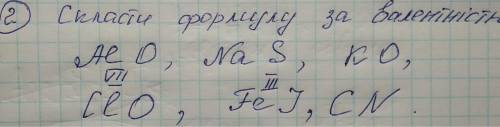 ② Скласти формулу за валентністю
Al O, Na S, K O,
VII III
Cl O, Fe J, C N.